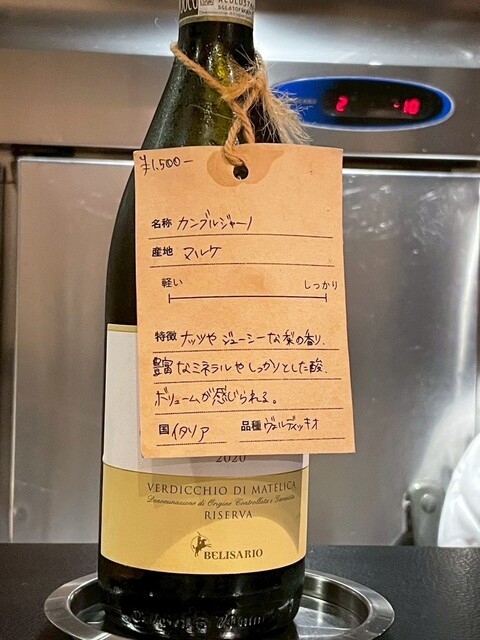 2 -18
¥1,500-
名称 カンブルジャーノ
産地 マルケ
軽い しっかり
特徴 ナッツや ジューシーな梨の香り、
豊富なミネラルや しっかりとした酸、
ボリュームが感じられる。
国 イタリア 品種 ヴェルディッキオ
2020
VERDICCHIO DI MATELICA
Denominazione di Origine Controllata e Garantita
RISERVA
BELISARIO